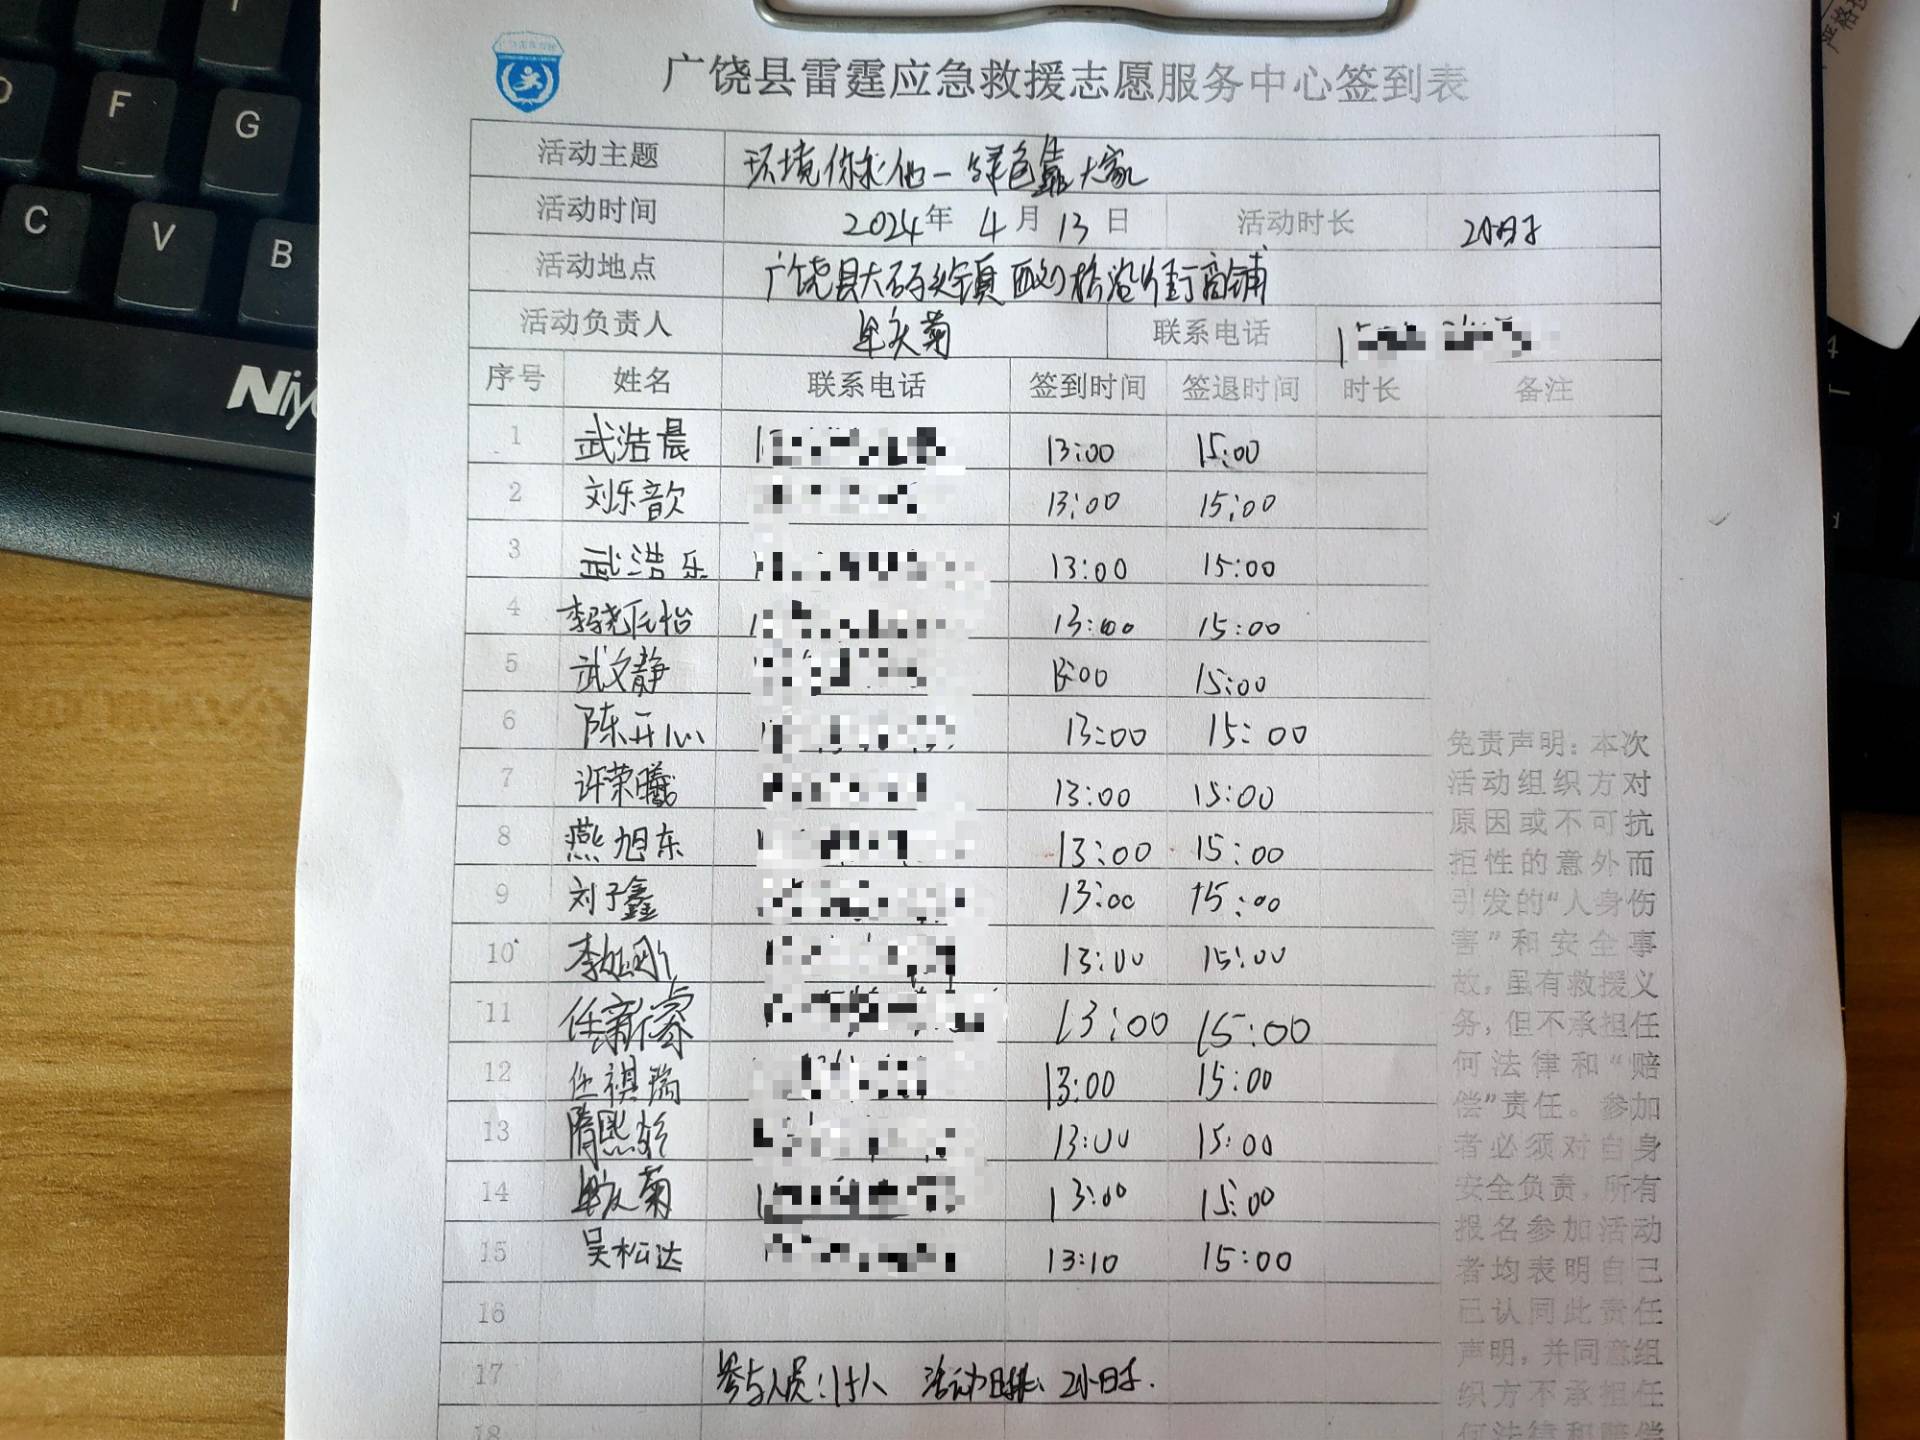 广饶县雷霆应急救援志愿服务中心签到表
活动主题 环境你我他一绿色靠大家
活动时间 2024年 4月 13日 活动时长 2小时
活动地点 广饶县大码头镇 沿街商铺
活动负责人 菊 联系电话
序号 姓名 联系电话 签到时间 签退时间 时长 备注
1 武浩晨 13:00 15:00
2 刘乐歆 13:00 15:00
3 武浩乐 13:00 15:00
4 李 怡 13:00 15:00
5 武文静 13:00 15:00
6 陈开心 13:00 15:00
7 许荣曦 13:00 15:00
8 燕旭东 13:00 15:00
9 刘子鑫 13:00 15:00
10 李 刚 13:00 15:00
11 任新睿 13:00 15:00
12 任祺瑞 13:00 15:00
13 隋熙 13:00 15:00
14 菊 13:00 15:00
15 吴松达 13:10 15:00
16
17 参与人员:15人 活动时长:2小时.
18
免责声明:本次
活动组织方对
原因或不可抗
拒性的意外而
引发的“人身伤
害”和安全事
故,虽有救援义
务,但不承担任
何法律和“赔
偿”责任。参加
者必须对自身
安全负责,所有
报名参加活动
者均表明自己
已认同此责任
声明,并同意组
织方不承担任
何法律和赔偿
严格按
Niy
F
G
C
V
B